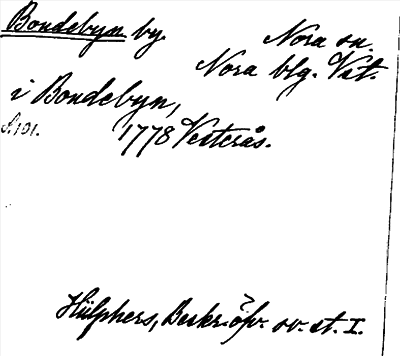 Bondebyn by. Nora sn.
Nora blg. Vst.
i Bondebyn,
S. 101. 1778 Vesterås.
Hülphers, Beskr. öfv. sv. st. I.